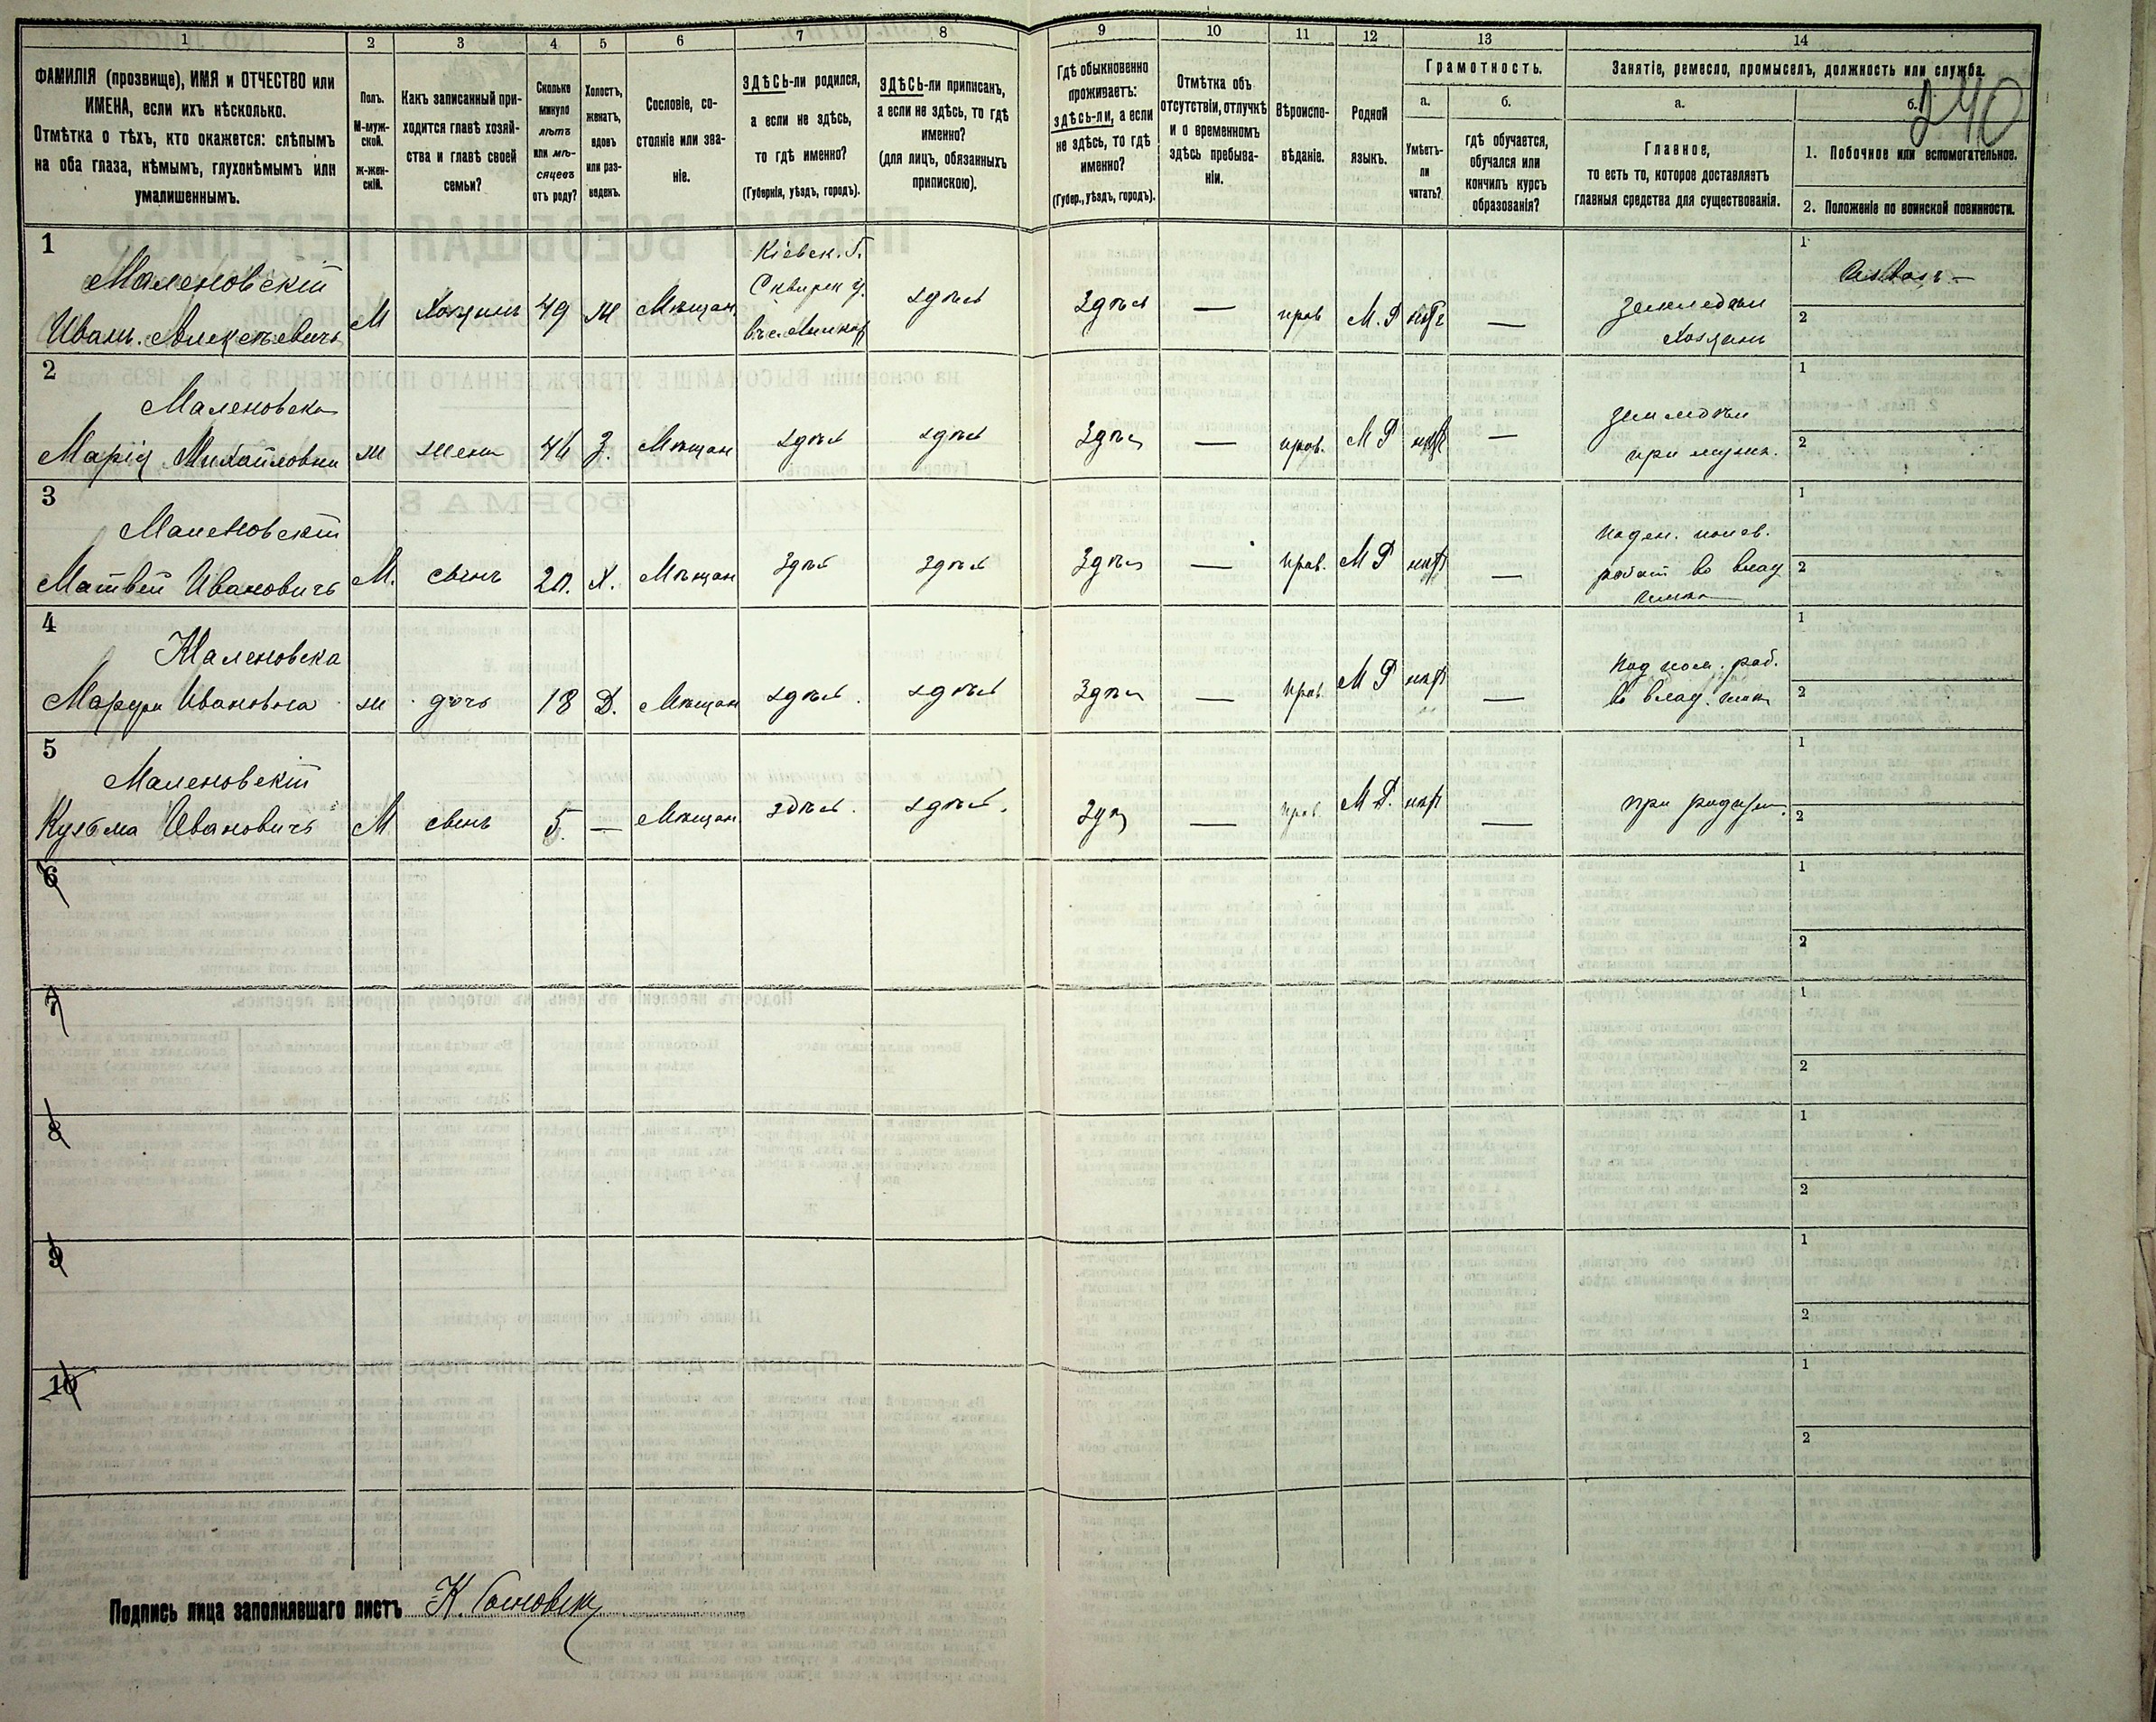 1 2 3 4 5 6 7 8 9 10 11 12 13 14
ФАМИЛІЯ (прозвище), ИМЯ и ОТЧЕСТВО или
ИМЕНА, если ихъ нѣсколько.
Отмѣтка о тѣхъ, кто окажется: слѣпымъ
на оба глаза, нѣмымъ, глухонѣмымъ или
умалишеннымъ.
Полъ.
М-муж-
ской.
ж-жен-
скій.
Какъ записанный при-
ходится главѣ хозяй-
ства и главѣ своей
семьи?
Сколько
минуло
лѣтъ
или мѣ-
сяцевъ
отъ роду?
Холостъ,
женатъ,
вдовъ
или раз-
веденъ.
Сословіе, со-
стояніе или зва-
ніе.
ЗДѢСЬ-ли родился,
а если не здѣсь,
то гдѣ именно?
(Губернія, уѣздъ, городъ).
ЗДѢСЬ-ли приписанъ,
а если не здѣсь, то гдѣ
именно?
(для лицъ, обязанныхъ
припискою).
Гдѣ обыкновенно
проживаетъ:
здѣсь-ли, а если
не здѣсь, то гдѣ
именно?
(Губер., уѣздъ, городъ).
Отмѣтка объ
отсутствіи, отлучкѣ
и о временномъ
здѣсь пребыва-
ніи.
Вѣроиспо-
вѣданіе.
Родной
языкъ.
Грамотность.
а.
Умѣетъ-
ли
читать?
б.
гдѣ обучается,
обучался или
кончилъ курсъ
образованія?
Занятіе, ремесло, промыселъ, должность или служба.
а.
Главное,
то есть то, которое доставляетъ
главныя средства для существованія.
б.
240
1. Побочное или вспомогательное.
2. Положеніе по воинской повинности.
1
Маленовскій
Иванъ. Алексѣевичъ
М Хозяинъ 49 ж Мѣщан
Кіевск. Г.
Сквирск у.
здѣсь здѣсь — прав М.Р нѣт —
земледѣл
хозяинъ
1
2
2
Маленовска
Марія Михайловна
ж жена 46 З. Мѣщан здѣсь здѣсь здѣсь — прав. М Р нѣт —
земледѣл
при мужѣ.
1
2
3
Маленовскій
Матвей Ивановичъ
М. сынъ 20. Х. Мѣщан здѣсь здѣсь здѣсь — прав. М Р нѣт —
поден. полев.
работ во влад
1
2
4
Маленовска
Ивановна
ж дочь 18 Д. Мѣщан здѣсь здѣсь здѣсь — прав. М Р нѣт —
под пол. раб.
во влад.
1
2
5
Маленовскій
Кузьма Ивановичъ
М сынъ 5. — Мѣщан здѣсь. здѣсь. здѣсь — прав. М Р. нѣт —
при родител.
1
2
6
1
2
7
1
2
8
1
2
9
1
2
10
1
2
Подпись лица заполнявшаго листъ К.